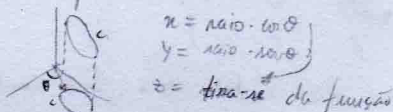 x = raio · cos θ
y = raio · sen θ
z = tira-se da função
θ
C
C